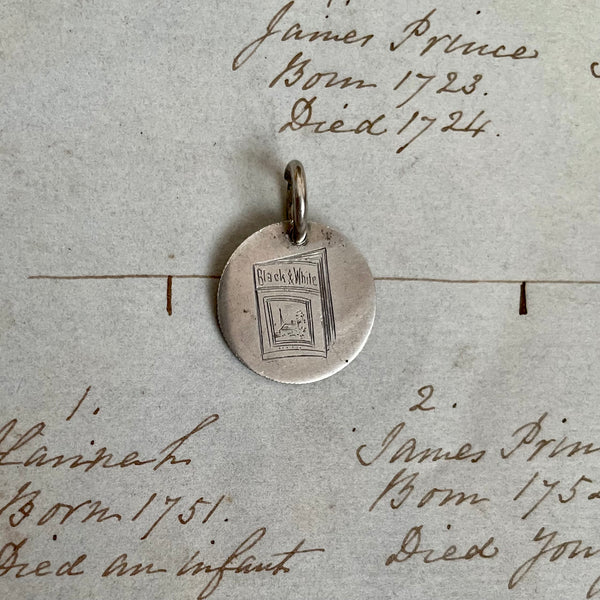 James Prince
Born 1723.
Died 1724.
Black & White
1.
Hannah
Born 1751.
Died an infant
2.
James Prin
Born 175
Died